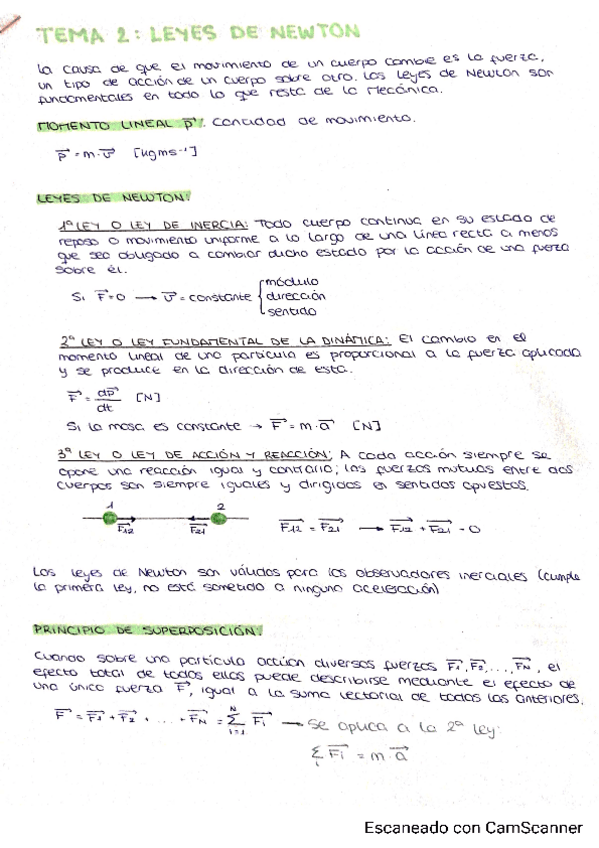 TEMA 2: LEYES DE NEWTON
La causa de que el movimiento de un cuerpo cambie es la fuerza,
un tipo de acción de un cuerpo sobre otro. Las leyes de Newton son
fundamentales en todo lo que resta de la Mecánica.
MOMENTO LINEAL p⃗: Cantidad de movimiento.
p⃗ = m·v⃗ [kgms⁻¹]
LEYES DE NEWTON:
1ª LEY O LEY DE INERCIA: Todo cuerpo continua en su estado de
reposo o movimiento uniforme a lo largo de una línea recta a menos
que sea obligado a cambiar dicho estado por la acción de una fuerza
sobre él.
Si F⃗=0 → v⃗ = constante { módulo
dirección
sentido
2ª LEY O LEY FUNDAMENTAL DE LA DINÁMICA: El cambio en el
momento lineal de una partícula es proporcional a la fuerza aplicada
y se produce en la dirección de esta.
F⃗ = dp⃗/dt [N]
Si la masa es constante → F⃗ = m·a⃗ [N]
3ª LEY O LEY DE ACCIÓN Y REACCIÓN: A cada acción siempre se
opone una reacción igual y contraria; las fuerzas mutuas entre dos
cuerpos son siempre iguales y dirigidas en sentidos opuestos.
1 2
F12 F21 F12 = F21 → F12 + F21 = 0
Las leyes de Newton son válidas para los observadores inerciales (cumple
la primera ley, no está sometido a ninguna aceleración)
PRINCIPIO DE SUPERPOSICIÓN:
Cuando sobre una partícula actúan diversas fuerzas F1, F2, ..., FN, el
efecto total de todas ellas puede describirse mediante el efecto de
una única fuerza F⃗, igual a la suma vectorial de todas las anteriores.
F⃗ = F1 + F2 + ... + FN = Σ(i=1, N) Fi → Se aplica a la 2ª ley:
Σi Fi = m·a⃗
Escaneado con CamScanner